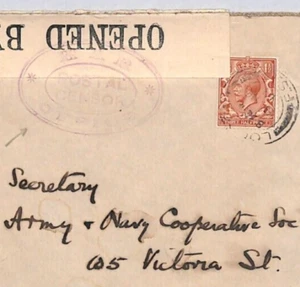 OPENED BY
POSTAL
CENSOR
Secretary
Army & Navy Cooperative Soc
105 Victoria St.